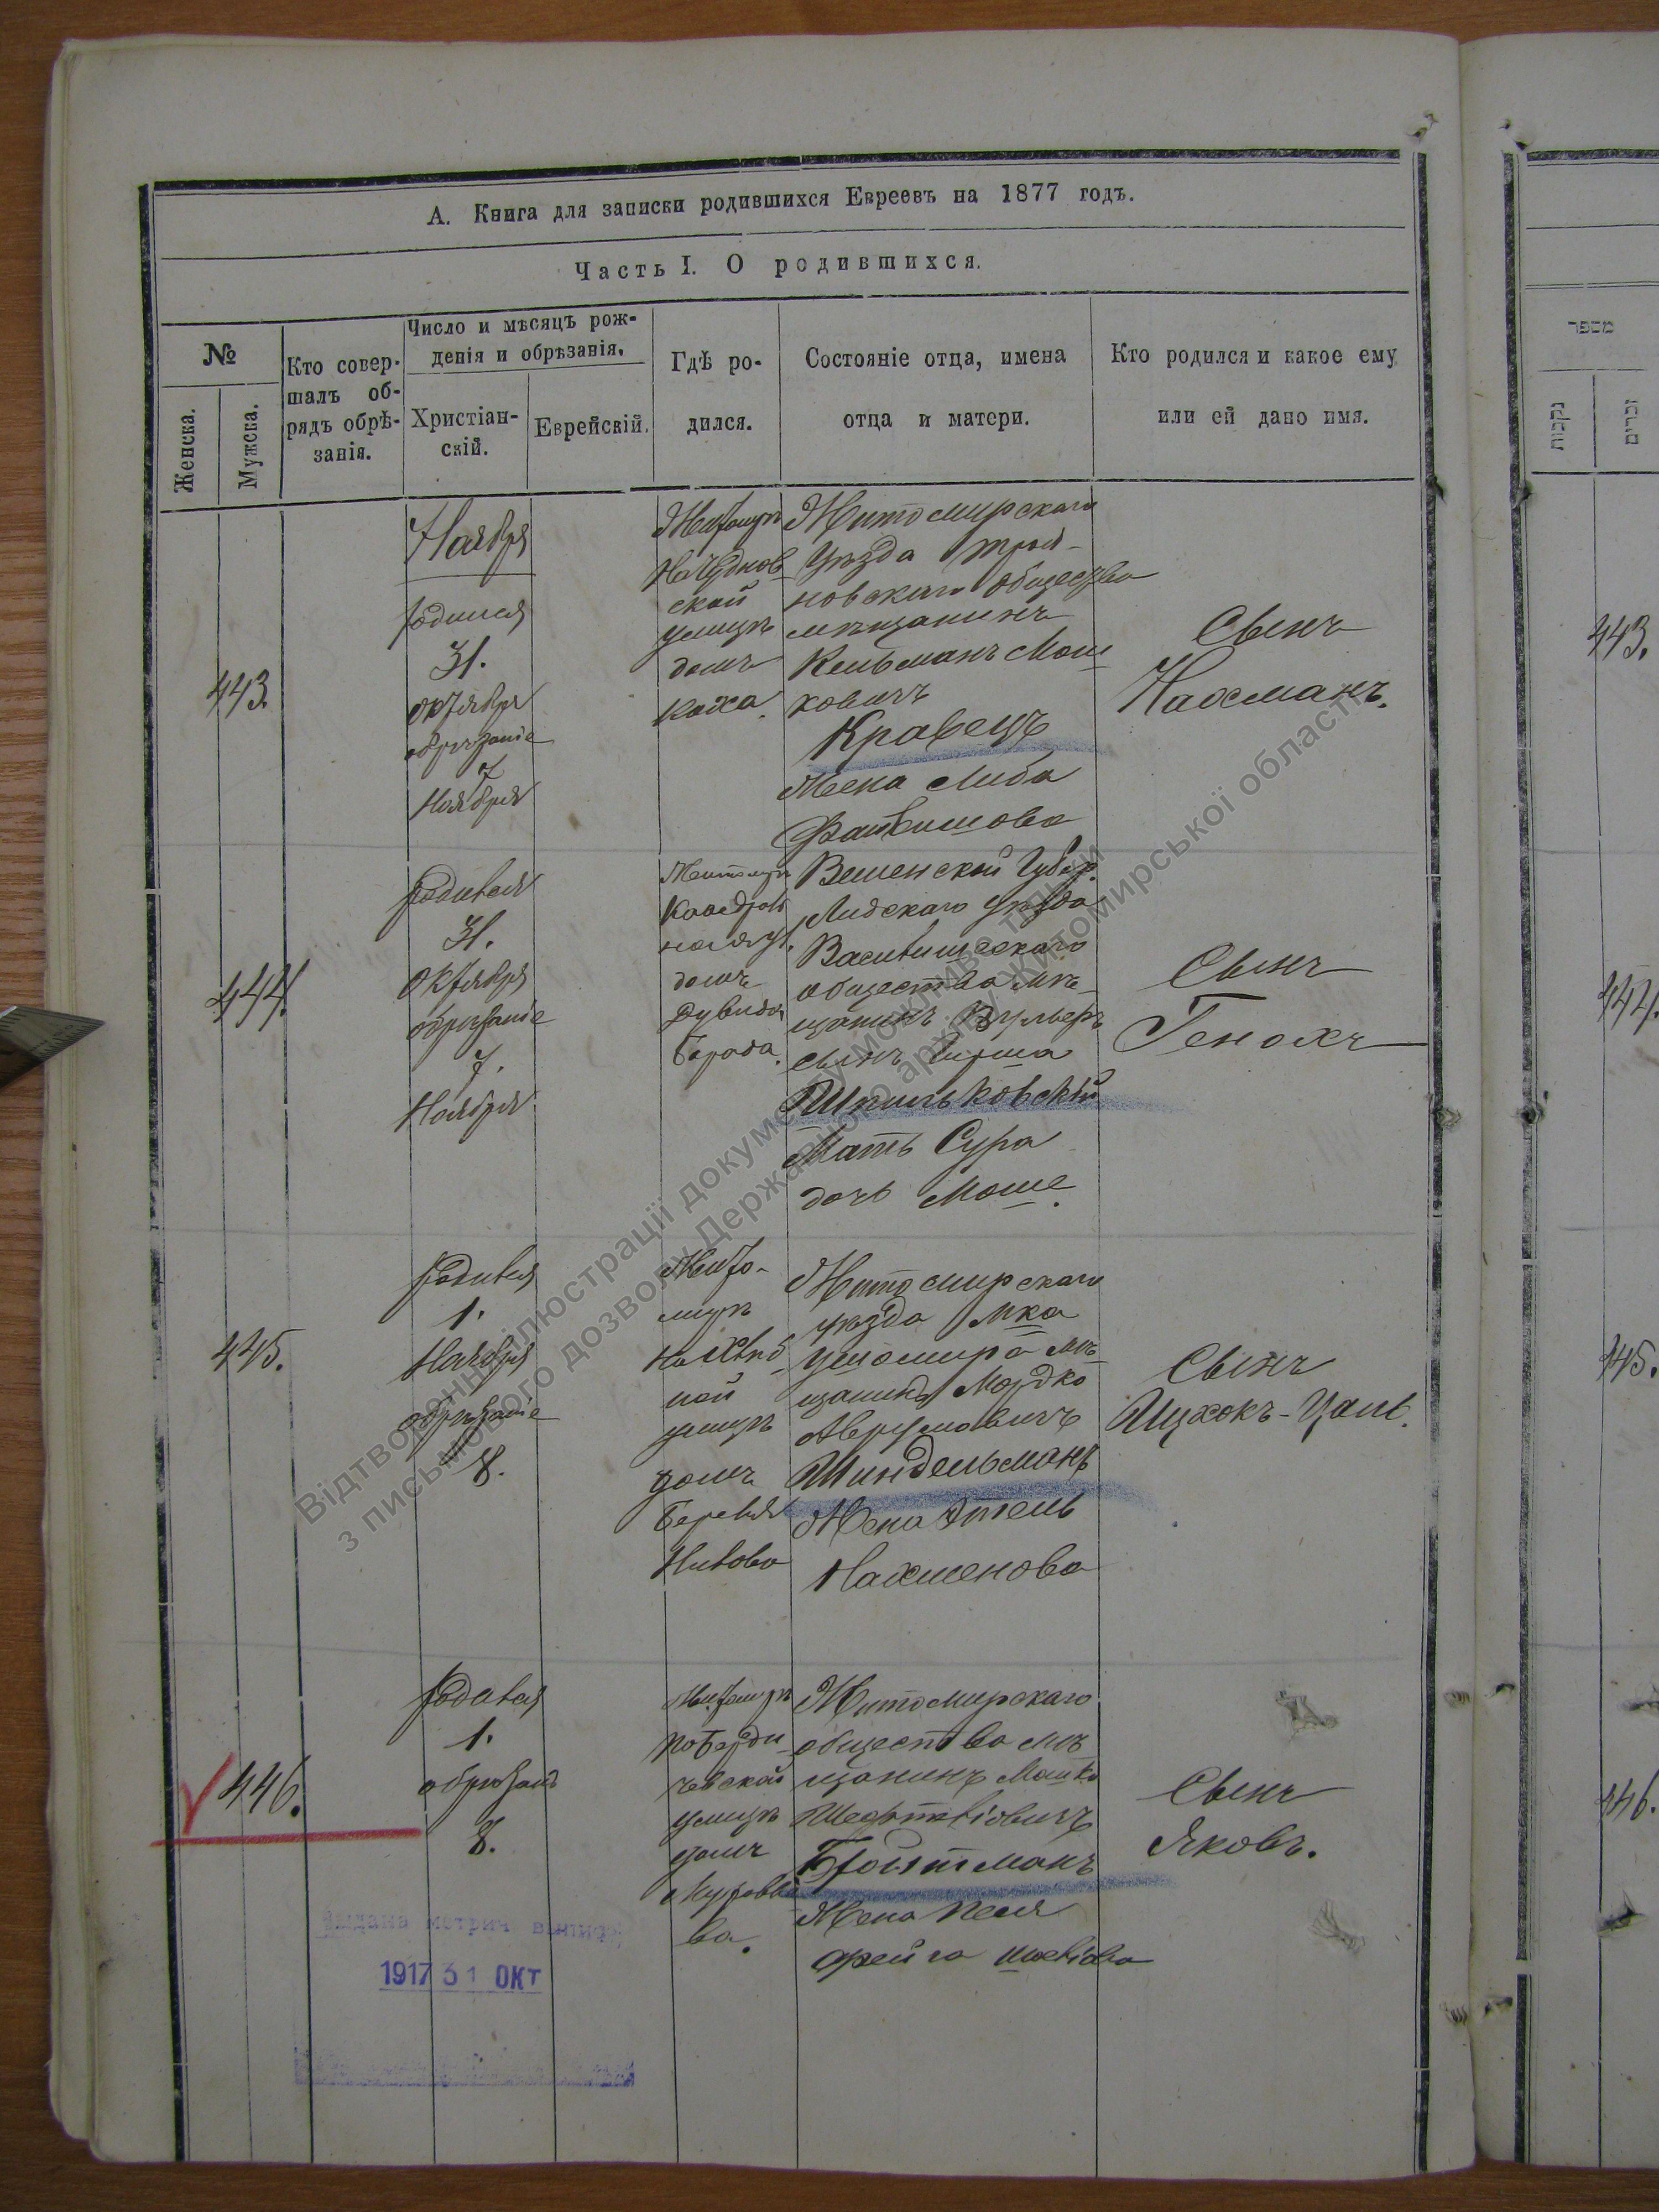 А. Книга для записки родившихся Евреевъ на 1877 годъ.
Часть I. О родившихся.
№
Женска.
Мужска.
Кто совер-
шалъ об-
рядъ обрѣ-
занія.
Число и мѣсяцъ рож-
денія и обрѣзанія.
Христіан-
скій.
Еврейскій.
Гдѣ ро-
дился.
Состояніе отца, имена
отца и матери.
Кто родился и какое ему
или ей дано имя.
443.
Ноября
родился
31.
октября
обрѣзаніе
7
Ноября
Житомиръ
На Чуднов
ской
улицѣ
домъ
Каца.
Житомирскаго
уѣзда Троя-
новскаго общества
мѣщанинъ
Кельманъ Мош
ковичъ
Кравецъ
Жена Либа
Файвишова
Сынъ
Нахманъ.
444.
родився
31.
октября
обрѣзаніе
7.
Ноября
Каѳедраль
ная ул.
домъ
Дувида
Вилен ской Губер.
Лидскаго уѣзда
Василишскаго
общества мѣ-
щанинъ
сынъ Гирша
Шкильковскій
Мать Сура
дочь Моше.
Сынъ
Генохъ
445.
родився
1.
Ноября
обрѣзаніе
8.
Жито-
миръ
На Хлѣб
ной
улицѣ
домъ
Житомирскаго
уѣзда Мка
Ушомира мѣ-
щанинъ Мордко
Аврумовичъ
Шиндельманъ
Жена Этель
Нахменова
Сынъ
Ицхокъ-
446.
родився
1.
8.
Житомиръ
По Берди
чевской
улицѣ
домъ
ва.
Житомирскаго
общества мѣ
щанинъ
Бройтманъ
Жена Песя
Фейга
Сынъ
Яковъ.
1917 31 ОКТ
מספר
נקבות
זכרים
443.
444.
445.
446.
Відтворення ілюстрації документу можливе тільки
з письмового дозволу Державного архіву Житомирської області